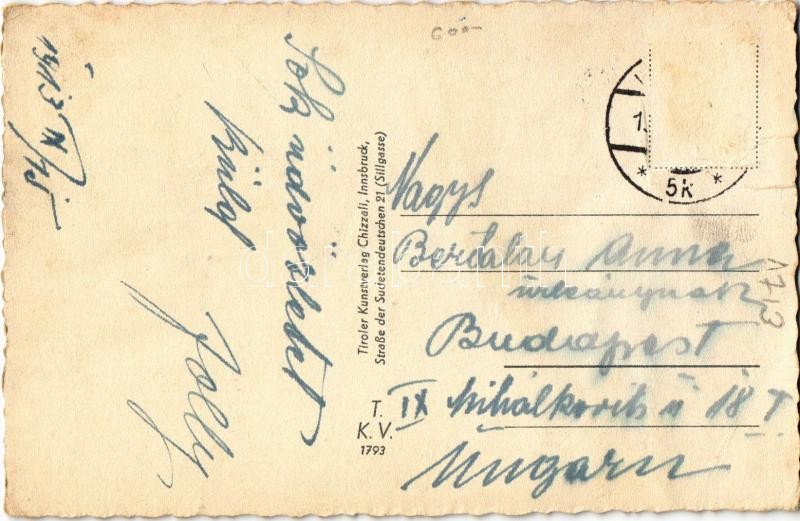 1943 IV/15
Sok üdvözletet
küld
Jolly
Tiroler Kunstverlag Chizzali, Innsbruck,
Straße der Sudetendeutschen 21 (Sillgasse)
T.
K. V.
1793
5k
Nagys
Bertalan Anna
úrleánynak
Budapest
IX Mihálkovits u 18 I.
Ungarn
1713
600-
darabanth